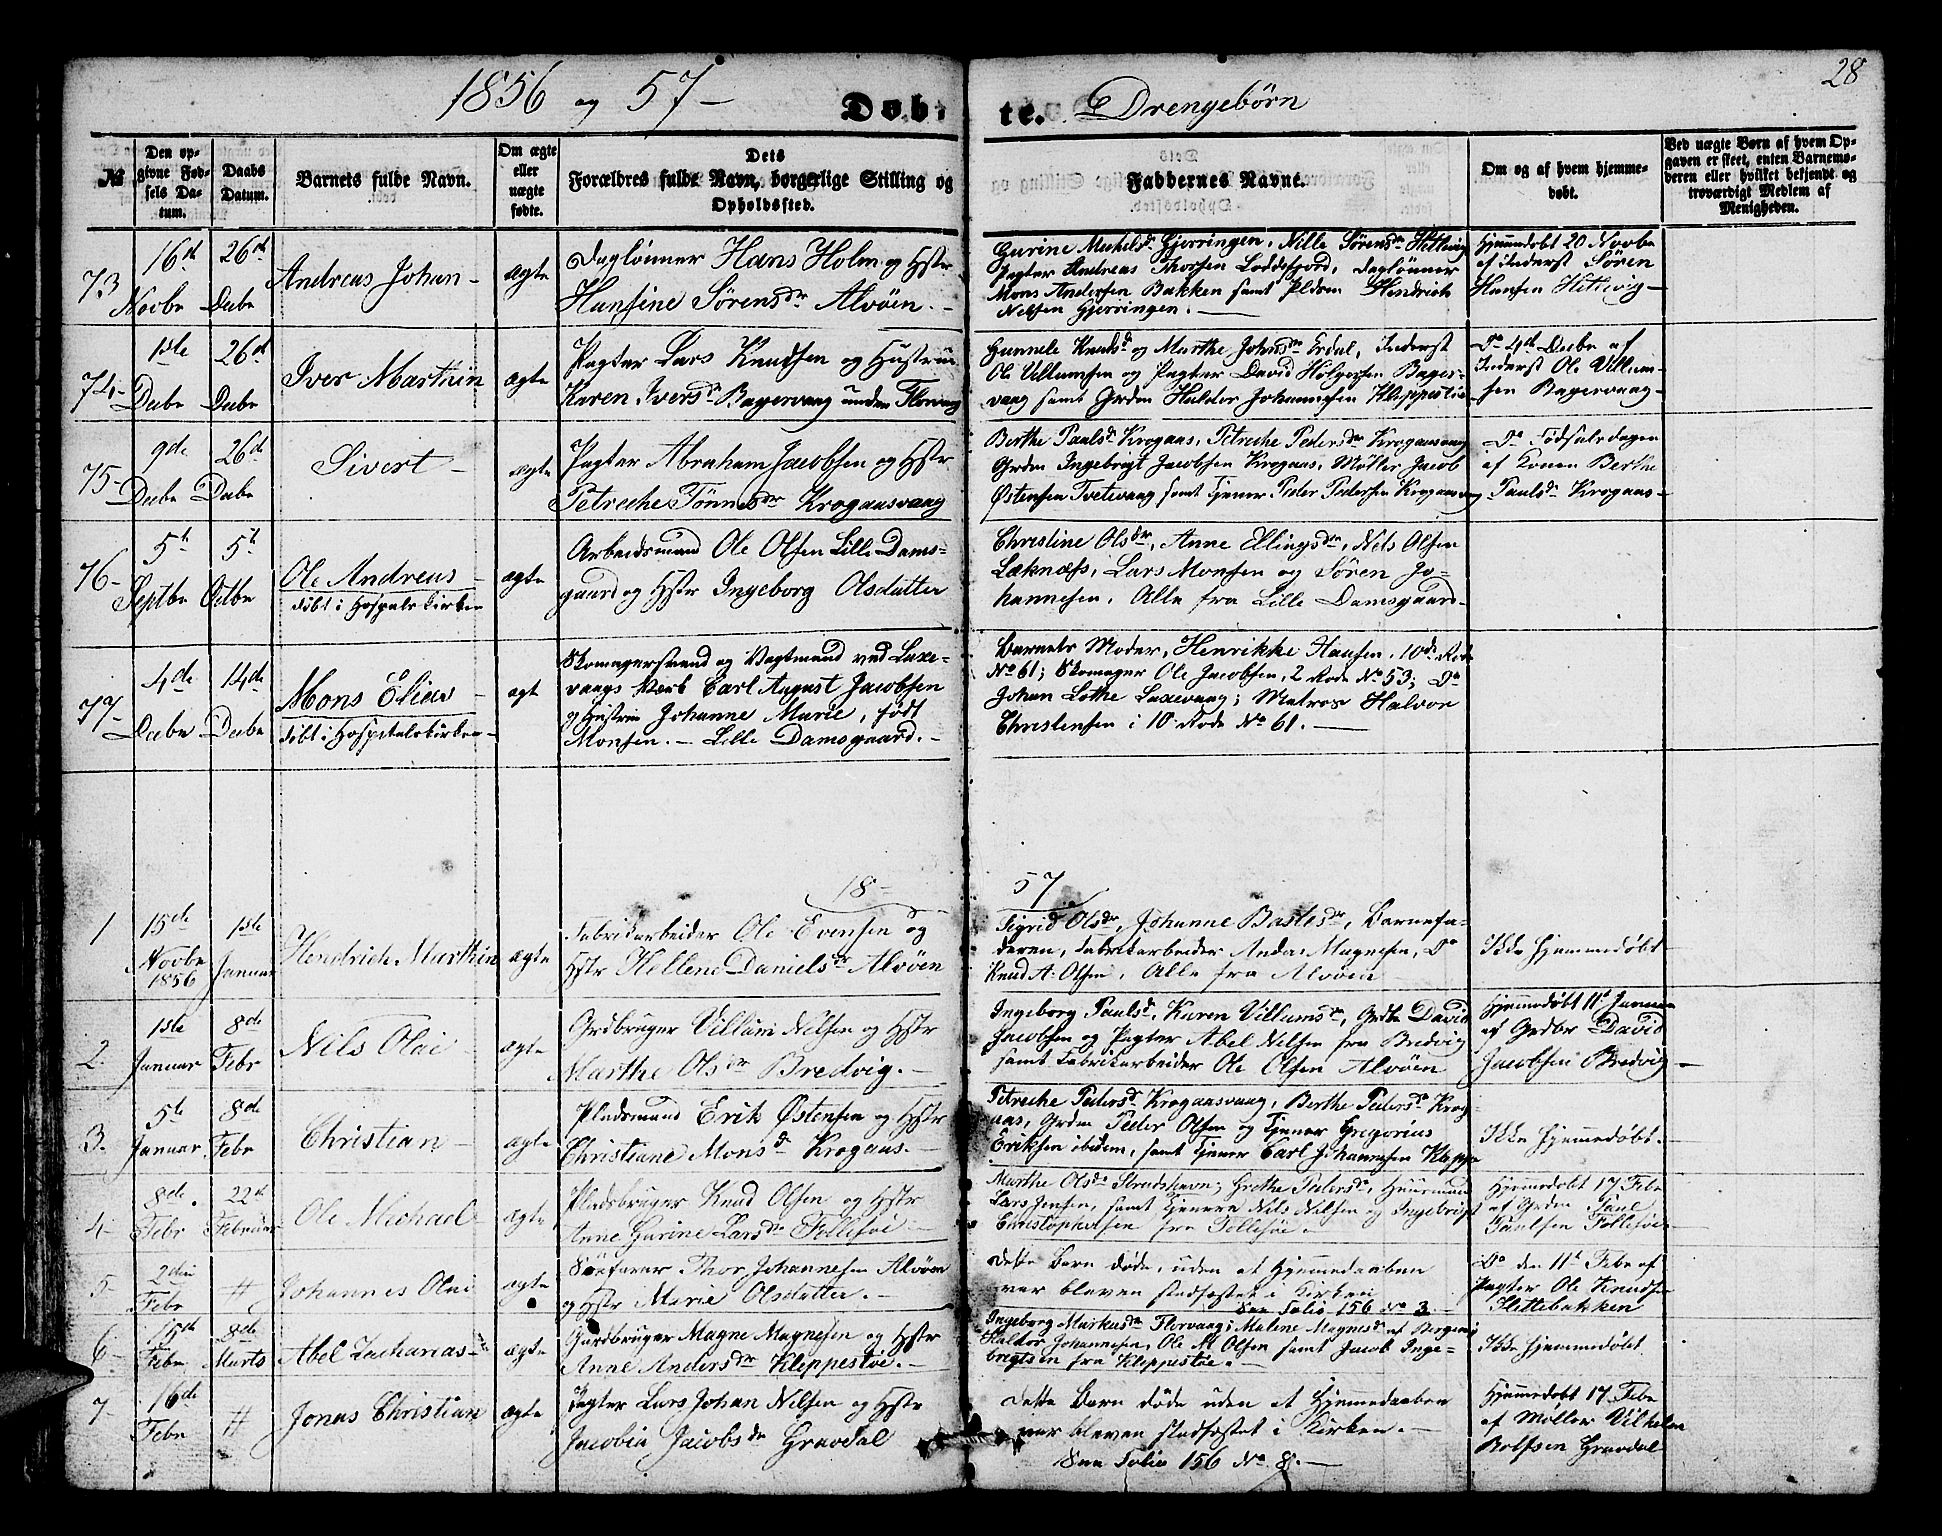 1856 og 57 — Døb-te. Drengebørn
28
№
Den op-
givne Fød-
sels Da-
tum.
Daabs
Datum.
Barnets fulde Navn.
Om ægte
eller
uægte
fødte.
Dets
Forældres fulde Navn, borgerlige Stilling og
Opholdssted.
Faddernes Navne.
Om og af hvem hjemme-
døbt.
Ved uægte Børn af hvem Op-
gaven er skeet, enten Barnemo-
deren eller hvilket bekjendt og
troværdigt Medlem af
Menigheden.
73
16de
Novbr
26de
Decbr
Andreas Johan —
ægte
Daglønner Hans Holm og Hstr
Hansine Sørensdr Alvøen. —
Gurine Mechelsd Gjerringen, Nille Sørensdr Hetlevig
Pagter Andreas Thorsen Loddefjord, Daglønner
Mons Andersen Bakken samt Pldrm Hendrich
Nilsen Gjerringen. —
Hjemmedøbt 20 Novbr
af Inderst Søren
Hansen Hetlevig —
74 —
1ste
Decbr
26de
Decbr
Iver Marthin
ægte
Pagter Lars Knudsen og Hustru
Karen Iversdr Bagervaag under Florvaag
Gunnele Knudsd og Marthe Johnsdr Erdal, Inderst
Ole Villumsen og Pagter David Holgersen Bager-
vaag samt Grdm Haldor Johannesen Kleppestøe —
Do 4de Decbr af
Inderst Ole Villum-
sen Bagervaag —
75 —
9de
Decbr
26de
Decbr
Sivert —
ægte
Pagter Abraham Jacobsen og Hstr
Petreche Tønnesdr Krogaasvaag
Berthe Paulsd Krogaas, Petreche Pedersdr Krogaasvaag
Grdm Ingebrigt Jacobsen Krogaas, Møller Jacob
Østensen Tvetevaag samt Tjener Peder Pedersen Krogaasvaag
Do Fødselsdagen
af Konen Berthe
Paulsd Krogaas —
76 —
5te
Septbr
5te
Octbr
Ole Andreas —
døbt i Hospitalskirken
ægte
Arbeidsmand Ole Olsen Lille Dams-
gaard og Hstr Ingeborg Olsdatter
Christine Olsdr, Anne Ellingsdr, Nils Olsen
Laknæss, Lars Monsen og Søren Jo-
hannesen. Alle fra Lille Damsgaard —
77 —
4de
Decbr
14de
Decbr
Mons Elias —
døbt i Hospitalskirken —
ægt
Skomagersvend og Vagtmand ved Laxe-
vaags Værk Carl August Jacobsen
og Hustru Johanne Marie, født
Monsen. — Lille Damsgaard. —
Barnets Moder, Henrikke Hansen, 10de Rode
No 61; Skomager Ole Jacobsen, 2 Rode No 53; Do
Johan Lothe Laxevaag; Matros Halvor
Christensen i 10 Rode No 61. —
18 — 57
1
15de
Novbr
1856
1ste
Januar
Hendrich Marthin
ægte
Fabrikarbeider Ole Evensen og
Hstr Hellene Danielsdr Alvøen
Sigrid Olsdr, Johanne Bastesdr, Barnefa-
deren, Fabrikarbeider Anders Magnesen, Do
Knud A. Olsen. Alle fra Alvøen —
Ikke Hjemmedøbt
2.
1ste
Januar
8de
Febr
Nils Olai —
ægte
Grdbruger Villum Nilsen og Hstr
Marthe Olsdr Bredvig. —
Ingeborg Paulsd, Karen Villumsdr, Grdbr David
Jacobsen og Pagter Abel Nilsen fra Bredvig
samt Fabrikarbeider Ole Olsen Alvøen
Hjemmedøbt 11te Januar
af Grdbr David
Jacobsen Bredvig —
3.
5te
Januar
8de
Febr
Christian —
ægte
Pladsmand Erik Østensen og Hstr
Christiane Monsd Krogaas. —
Petreche Pedersd Krogaasvaag, Berthe Pedersdr Krog-
aas, Grdm Peder Olsen og Tjener Gregorius
Eriksen ibidem, samt Tjener Carl Johannesen Kleppe
Ikke Hjemmedøbt. —
4 —
8de
Febr
22de
Februar
Ole Michael —
ægte
Pladsbruger Knud Olsen og Hstr
Anne Gurine Larsdr Follesøe
Marthe Olsdr Strudshavn; Grethe Pedersdr, Huusmand
Lars Jensen, samt Tjenere Nils Nilsen og Ingebrigt
Christophersen fra Follesøe. —
Hjemmedøbt 17 Febr
af Grdm Paul
Paulsen Follesøe —
5 —
2den
Febr
#
Johannes Olai
ægte
Søefarer Thor Johannesen Alvøen
og Hstr Marie Olsdatter. —
Dette Barn døde, uden at Hjemmedaaben
var bleven stadfæstet i Kirken
See Folio 156 No 3 —
Do den 11te Febr af
Pagter Ole Knudsen
Hettebakken
6 —
15de
Febr
8de
Marts
Abel Zacharias —
ægte
Gaardbruger Magne Magnesen og Hstr
Anne Andersdr Kleppestøe. —
Ingeborg Markusdr Florvaag; Malene Magnesdr af Bergen;
Haldor Johannesen, Ole M Olsen samt Jacob Inge-
brigtsen fra Kleppestøe. —
Ikke Hjemmedøbt
7 —
16de
Febr
#
Jonas Christian
ægte
Pagter Lars Johan Nilsen og Hstr
Jacobia Jacobsdr Gravdal
Dette Barn døde uden at Hjemmedaaben
var bleven stadfæstet i Kirken. —
See Folio 156 No 8. —
Hjemmedøbt 17 Febr
af Møller Vilhelm
Rolfsen Gravdal